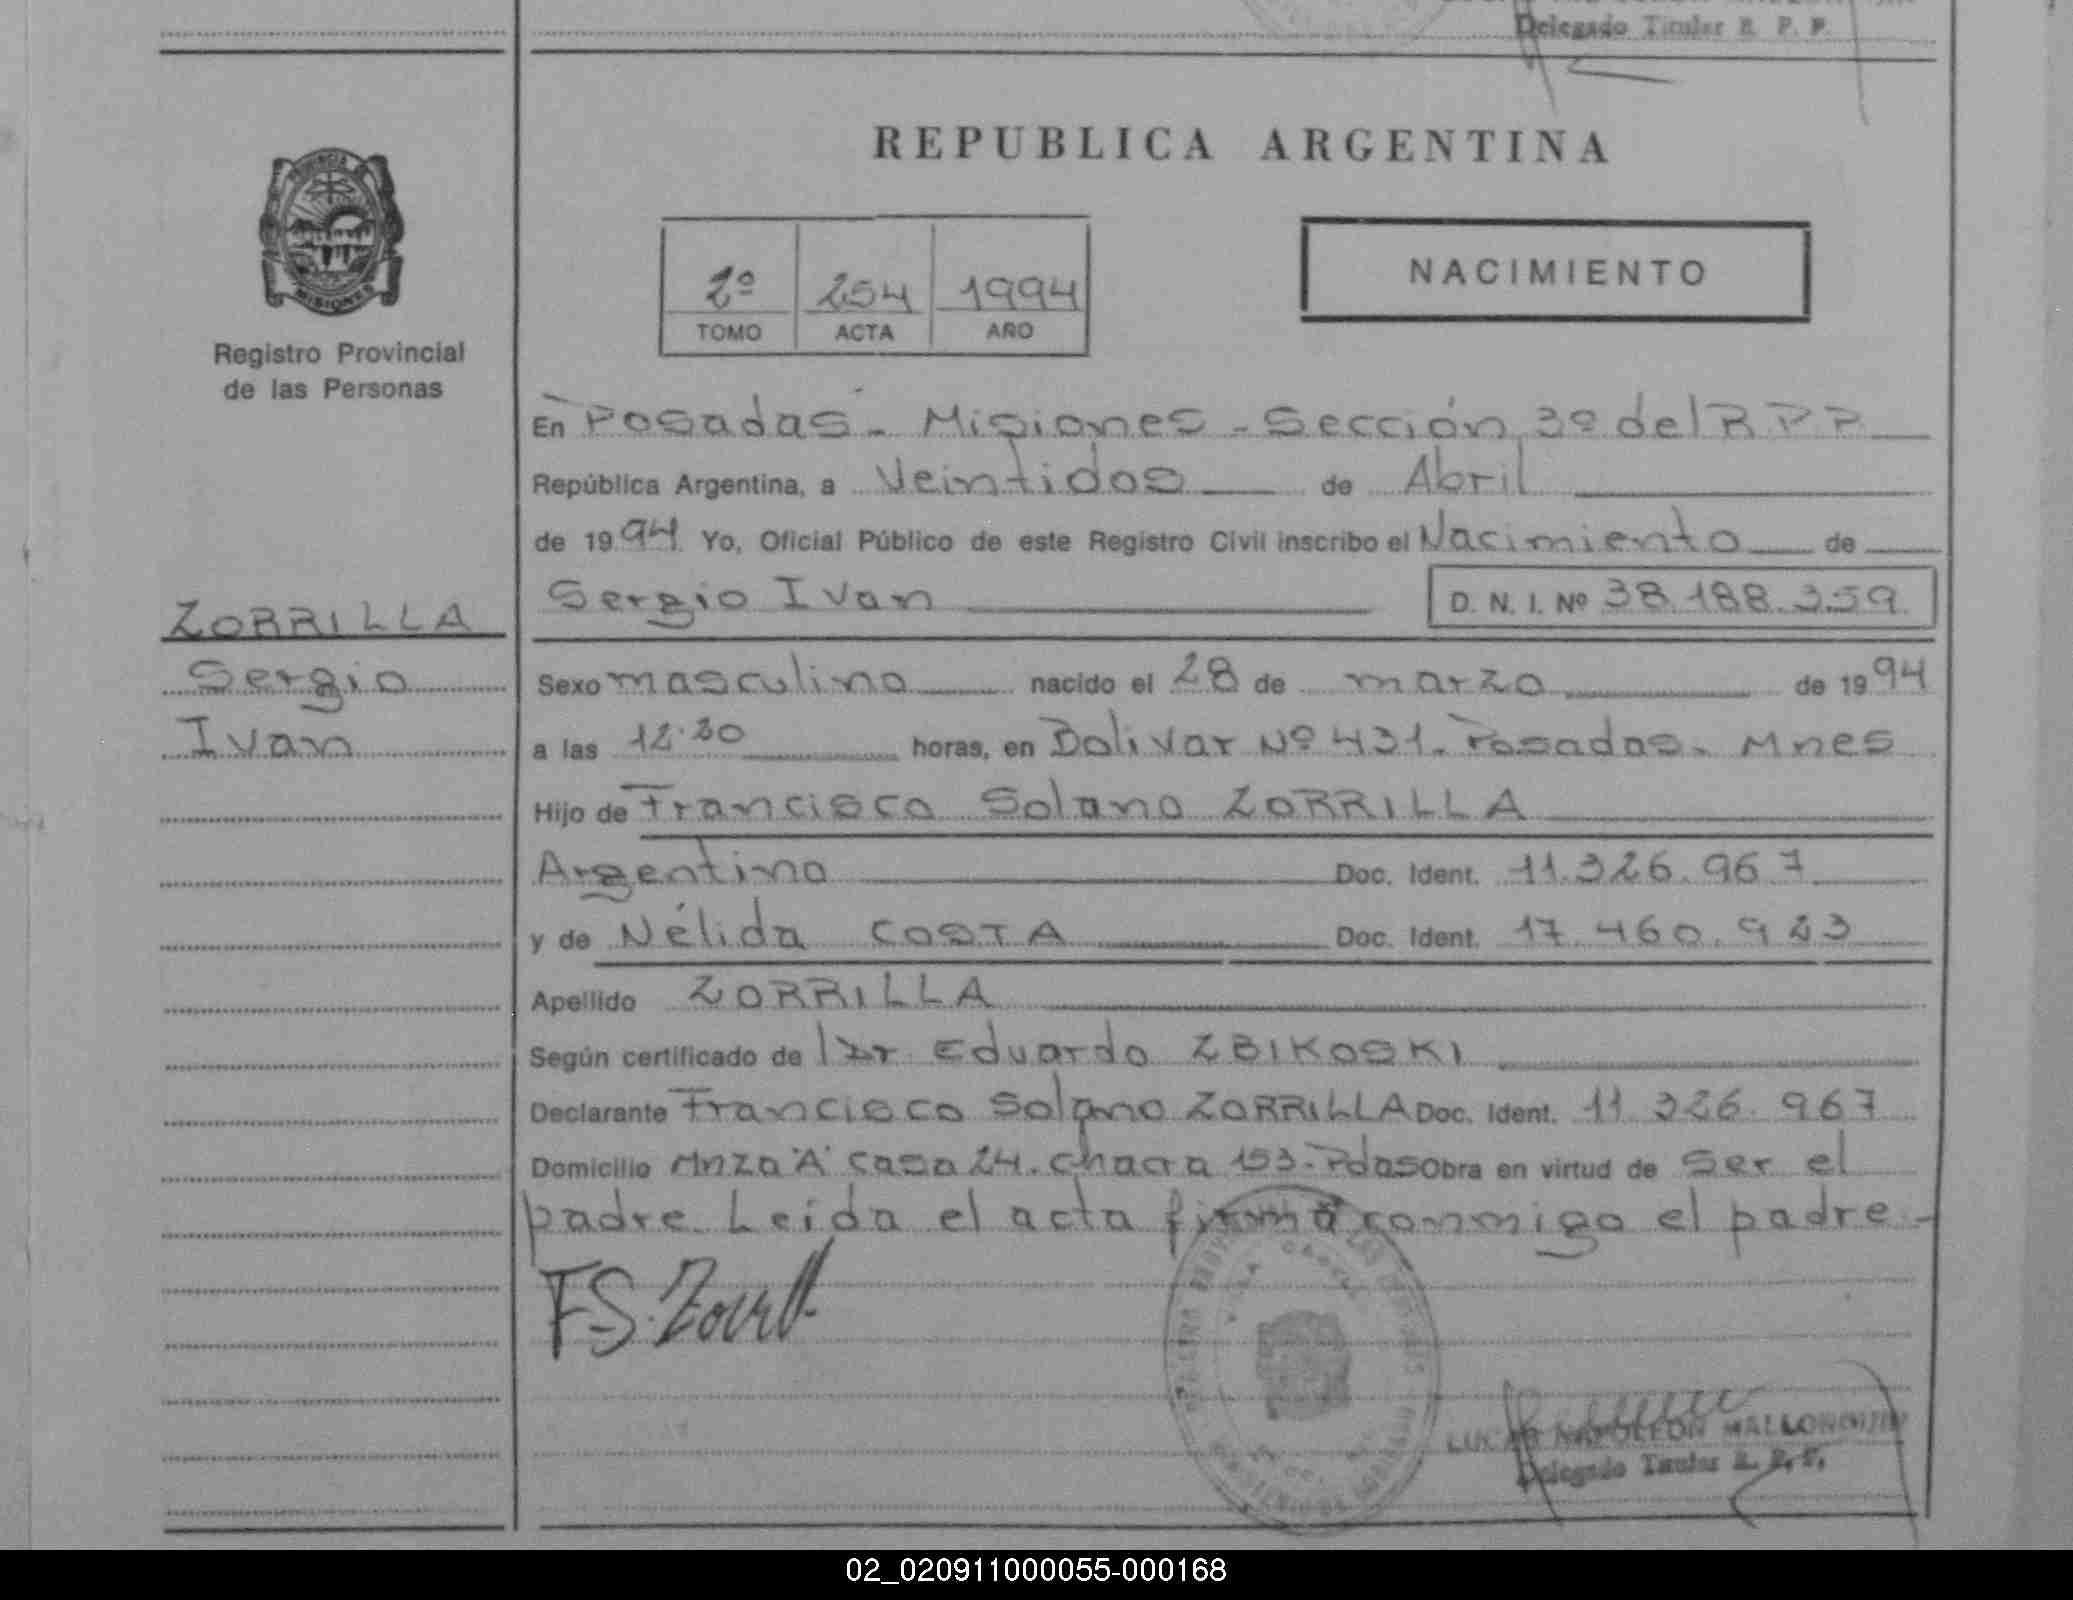 Delegado Titular R. P. P.
REPUBLICA ARGENTINA
PROVINCIA
MISIONES
2º 254 1994
TOMO ACTA AÑO
NACIMIENTO
Registro Provincial
de las Personas
En Posadas - Misiones - Sección 3º del R P P
República Argentina, a Veintidos de Abril
de 1994 Yo, Oficial Público de este Registro Civil inscribo el Nacimiento de
Sergio Ivan D. N. I. Nº 38.188.359.
ZORRILLA
Sergio
Ivan
Sexo masculino nacido el 28 de marzo de 1994
a las 12.30 horas, en Bolivar Nº 431. Posadas. Mnes
Hijo de Francisco Solano ZORRILLA
Argentino Doc. Ident. 11.326.967
y de Nélida COSTA Doc. Ident. 17.460.923
Apellido ZORRILLA
Según certificado de Dr Eduardo ZBIKOSKI
Declarante Francisco Solano ZORRILLA Doc. Ident. 11.326.967
Domicilio Mnza "A" casa 24. chacra 153. Pdas Obra en virtud de Ser el
padre. Leida el acta firma conmigo el padre -
F.S. Zorrilla
Delegado Titular R. P. P.
02_020911000055-000168